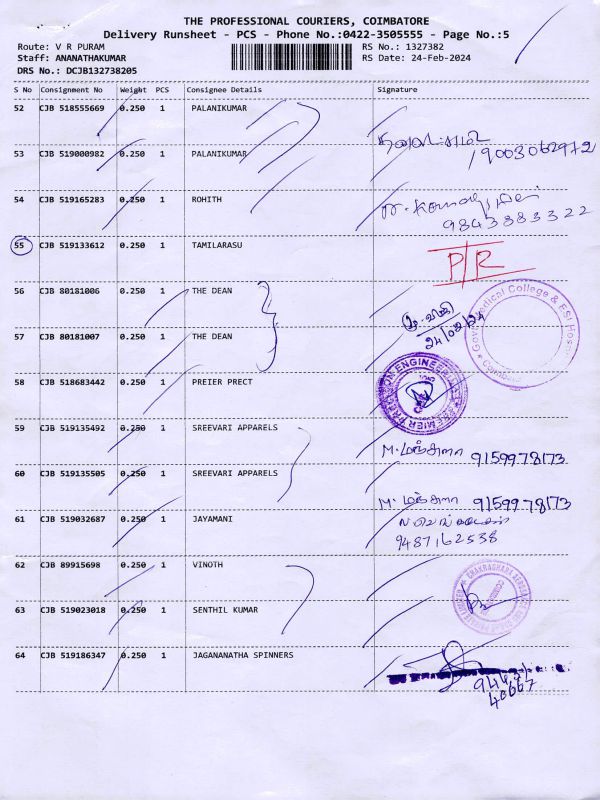 THE PROFESSIONAL COURIERS, COIMBATORE
Delivery Runsheet - PCS - Phone No.:0422-3505555 - Page No.:5
Route: V R PURAM RS No.: 1327382
Staff: ANANATHAKUMAR RS Date: 24-Feb-2024
DRS No.: DCJB132738205
S No Consignment No Weight PCS Consignee Details Signature
52 CJB 518555669 0.250 1 PALANIKUMAR
53 CJB 519000982 0.250 1 PALANIKUMAR 9003062972
54 CJB 519165283 0.250 1 ROHITH
9843883322
55 CJB 519133612 0.250 1 TAMILARASU P/R
56 CJB 80181006 0.250 1 THE DEAN
57 CJB 80181007 0.250 1 THE DEAN 24/02/24
Govt. Medical College & ESI
58 CJB 518683442 0.250 1 PREIER PRECT
59 CJB 519135492 0.250 1 SREEVARI APPARELS
M. மஞ்சுளா 9159978173
60 CJB 519135505 0.250 1 SREEVARI APPARELS
M. மஞ்சுளா 9159978173
61 CJB 519032687 0.250 1 JAYAMANI
9487162538
62 CJB 89915698 0.250 1 VINOTH
63 CJB 519023018 0.250 1 SENTHIL KUMAR
64 CJB 519186347 0.250 1 JAGANANATHA SPINNERS
40667